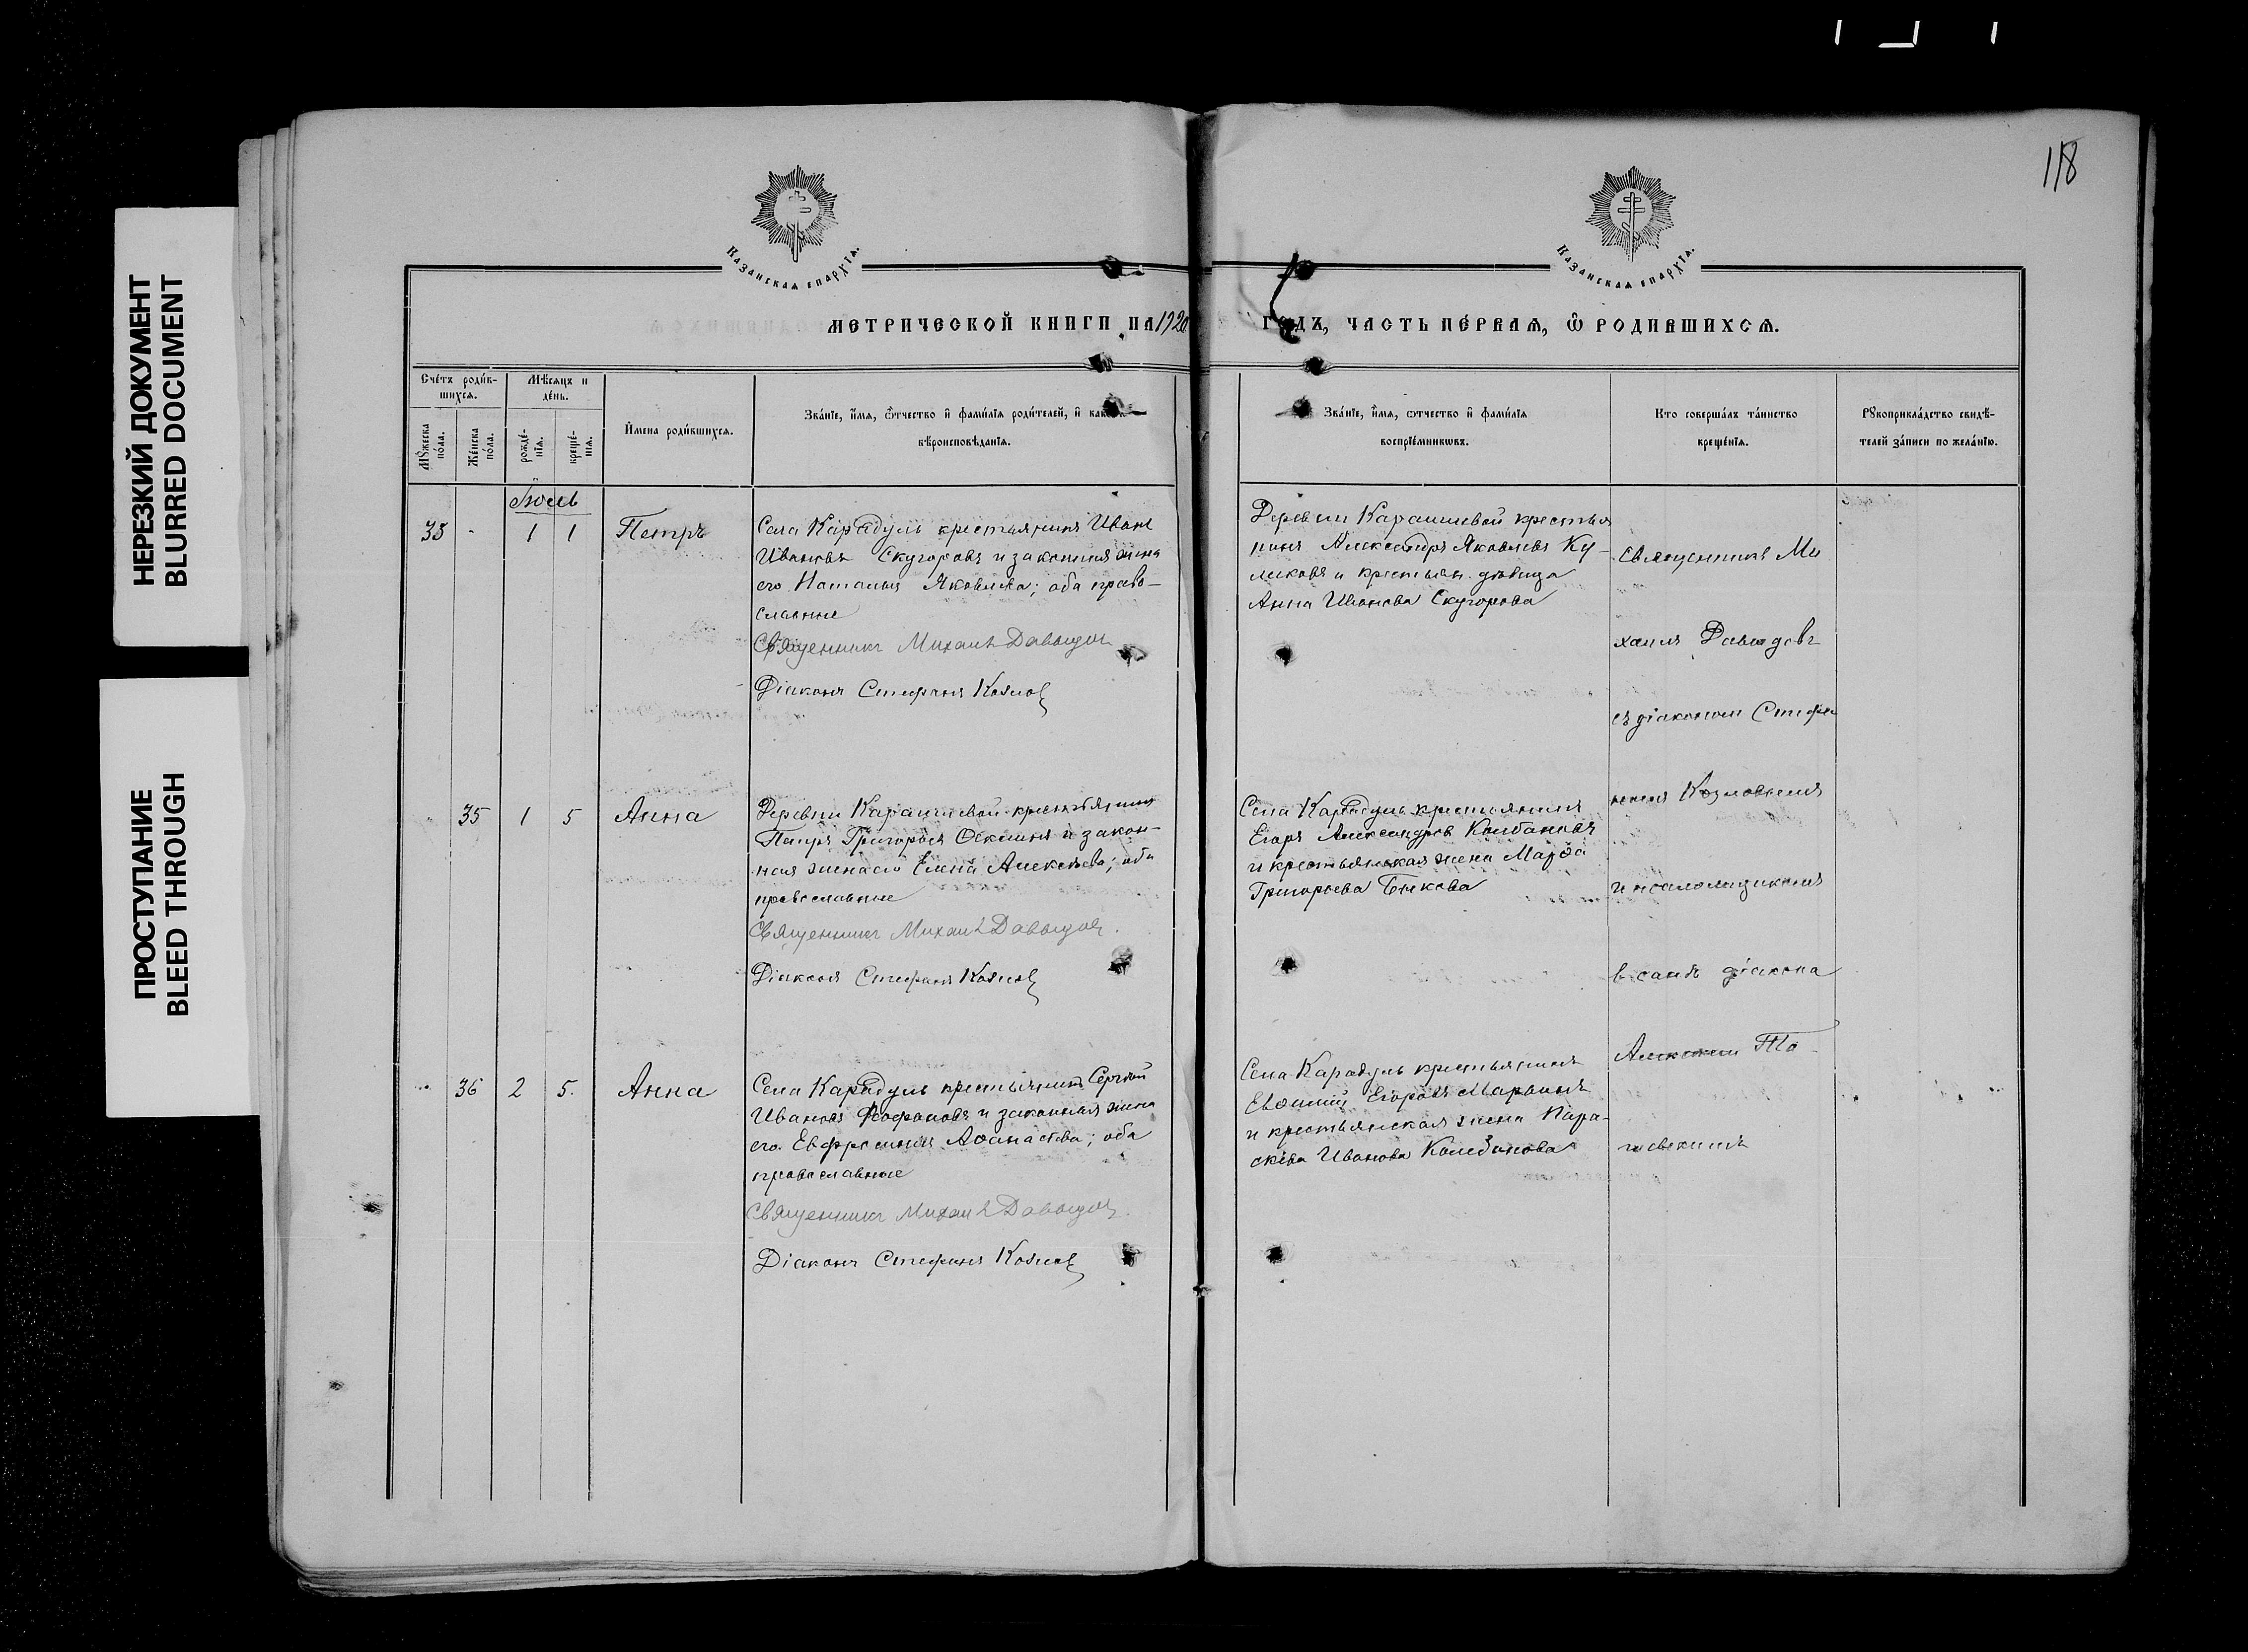 118
НЕРЕЗКИЙ ДОКУМЕНТ
BLURRED DOCUMENT
ПРОСТУПАНИЕ
BLEED THROUGH
Казанская епархїа.
Казанская епархїа.
МЕТРИЧЕСКОЙ КНИГИ НА 1920 ГОДЪ, ЧАСТЬ ПЕ́РВАѦ, Ѡ РОДИВШИХСѦ.
Сче́тъ роди́в-
шихсѧ.
Мꙋжеска по́ла.
Же́нска по́ла.
Мѣ́сѧцъ и
де́нь.
рожде́-
нїѧ.
креще́-
нїѧ.
И҆мена роди́вшихсѧ.
Зва́нїе, и҆́мѧ, ѻ҆́тчество и҆ фами́лїѧ роди́телей, и҆ како́гѡ
вѣроисповѣ́данїѧ.
Зва́нїе, и҆́мѧ, ѻ҆́тчество и҆ фами́лїѧ
воспрїе́мникѡвъ.
Кто соверша́лъ та́инство
креще́нїѧ.
Рꙋкоприкла́дство свидѣ́-
телей за́писи по жела́нїю.
Іюль
35 - 1 1 Петръ
Села Карадуль крестьянинъ Иванъ
Ивановъ Скугоровъ и законная жена
его Наталья Яковлева; оба право-
славные
Священникъ Михаилъ Давыдовъ
Діаконъ Стефанъ Козловъ
Деревни Карашевой крестья
нинъ Александръ Яковлевъ Ку-
ликовъ и крестьян. девица
Анна Иванова Скугорова
Священникъ Ми
хаилъ Давыдовъ
съ діакономъ Стефа
номъ Козловымъ
и псаломщикомъ
в санѣ діакона
35 1 5 Анна
Деревни Карашевой крестьянинъ
Петръ Григорьевъ и закон-
ная жена его Елена Алексѣева; оба
православные
Священникъ Михаилъ Давыдовъ.
Діаконъ Стефанъ Козловъ
Села Карадуль крестьянинъ
Егоръ Александровъ Колбановъ
и крестьянская жена Марѳа
Григорьева Быкова
36 2 5. Анна
Села Карадуль крестьянинъ Сергѣй
Ивановъ и законная жена
его Евфросинія Аѳанасьева; оба
православные
Священникъ Михаилъ Давыдовъ.
Діаконъ Стефанъ Козловъ
Села Карадуль крестьянинъ
Евѳимій Егоровъ
и крестьянская жена Пара-
скева Иванова Колбанова